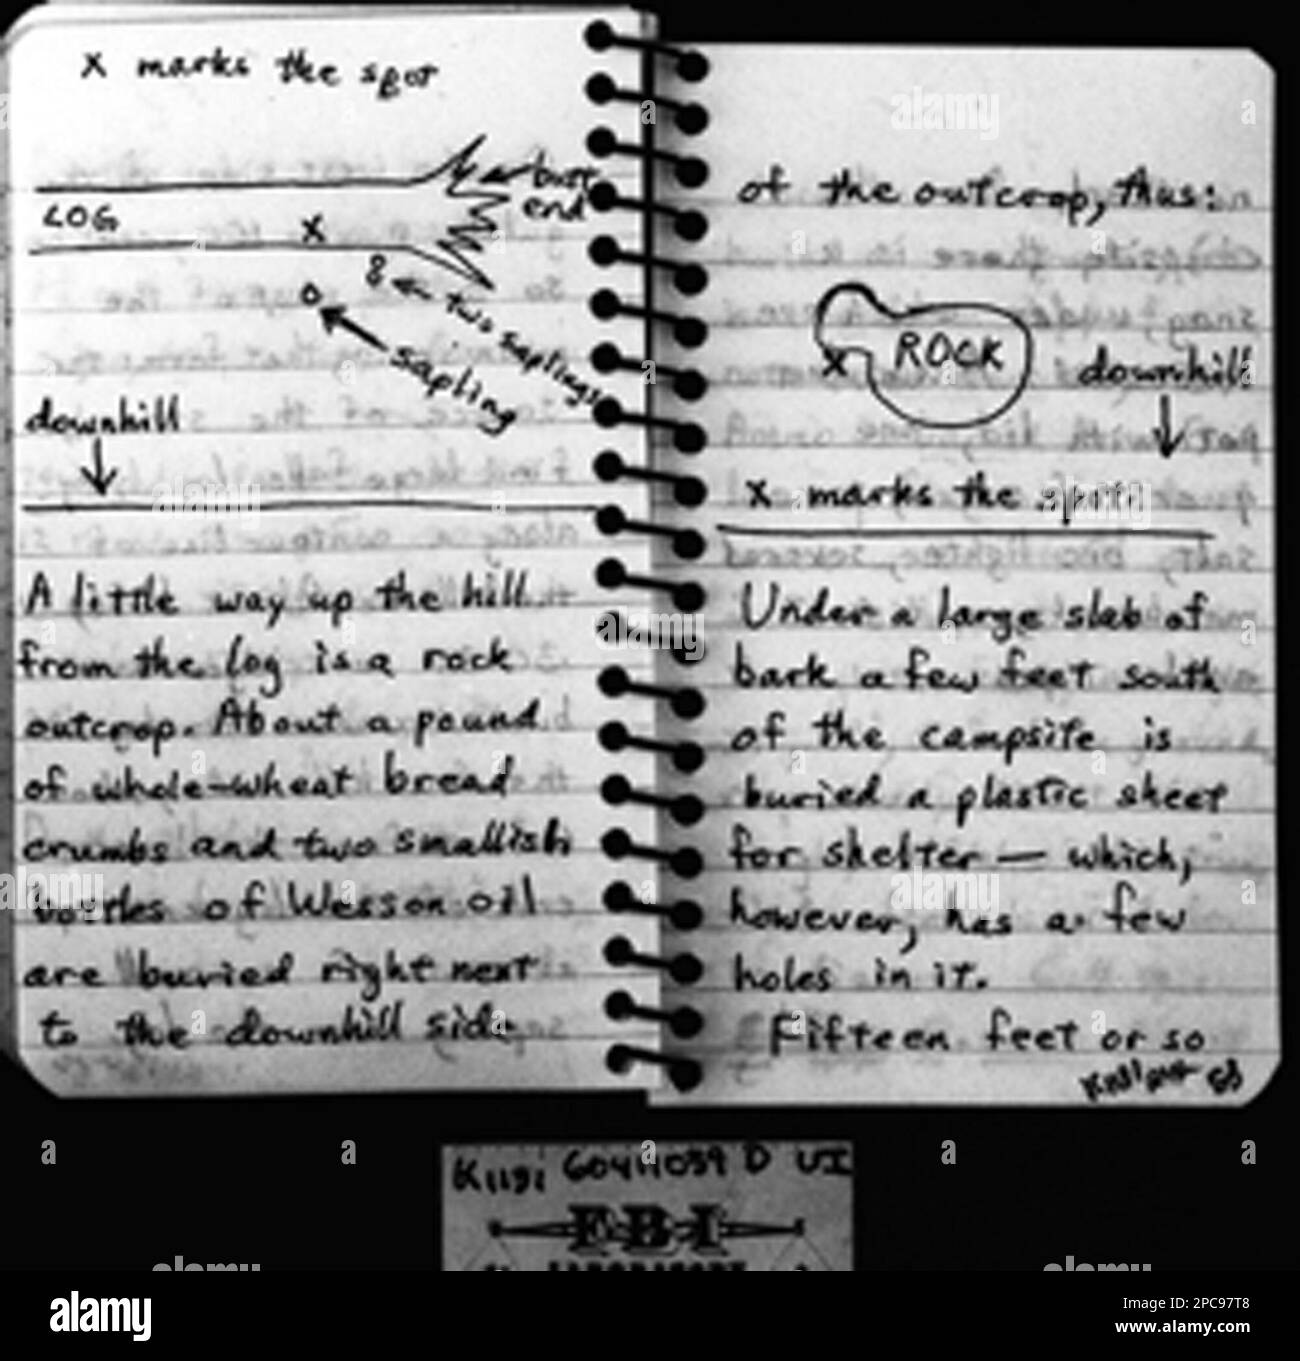 x marks the spot
butt
end
LOG
x
two saplings
sapling
downhill
A little way up the hill
from the log is a rock
outcrop. About a pound
of whole-wheat bread
crumbs and two smallish
bottles of Wesson oil
are buried right next
to the downhill side
of the outcrop, thus:
ROCK
x
downhill
x marks the spot
Under a large slab of
bark a few feet south
of the campsite is
buried a plastic sheet
for shelter — which,
however, has a few
holes in it.
Fifteen feet or so
D UI
FBI
LABORATORY
alamy
Image ID: 2PC97T8
www.alamy.com